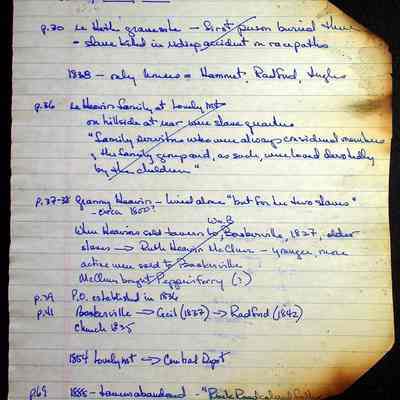 p.30 re Heth gravesite - first person buried there
= slave killed in
1838 - only = Hammet, Radford, Ingles
p.36 re Heavin family at Lovely Mt
on hillside at rear were slave quarters
"family servitors who were always considered members
of the family group and, as such, were loved devotedly
by the children"
p.37-38 Granny Heavin - lived alone "but for her two slaves"
- circa 1800?
Wm. B
When Heavins sold tavern to Baskerville, 1827, older
slaves → Ruth Heavin McClure - younger, more
active were sold to Baskerville
McClure bought Peppers Ferry (?)
p.39 P.O. established in 1836
p.41 Baskerville → Cecil (1837) → Radford (1842)
Church 1835
1854 Lovely Mt → Central Depot
p.69 1888 - abandoned -